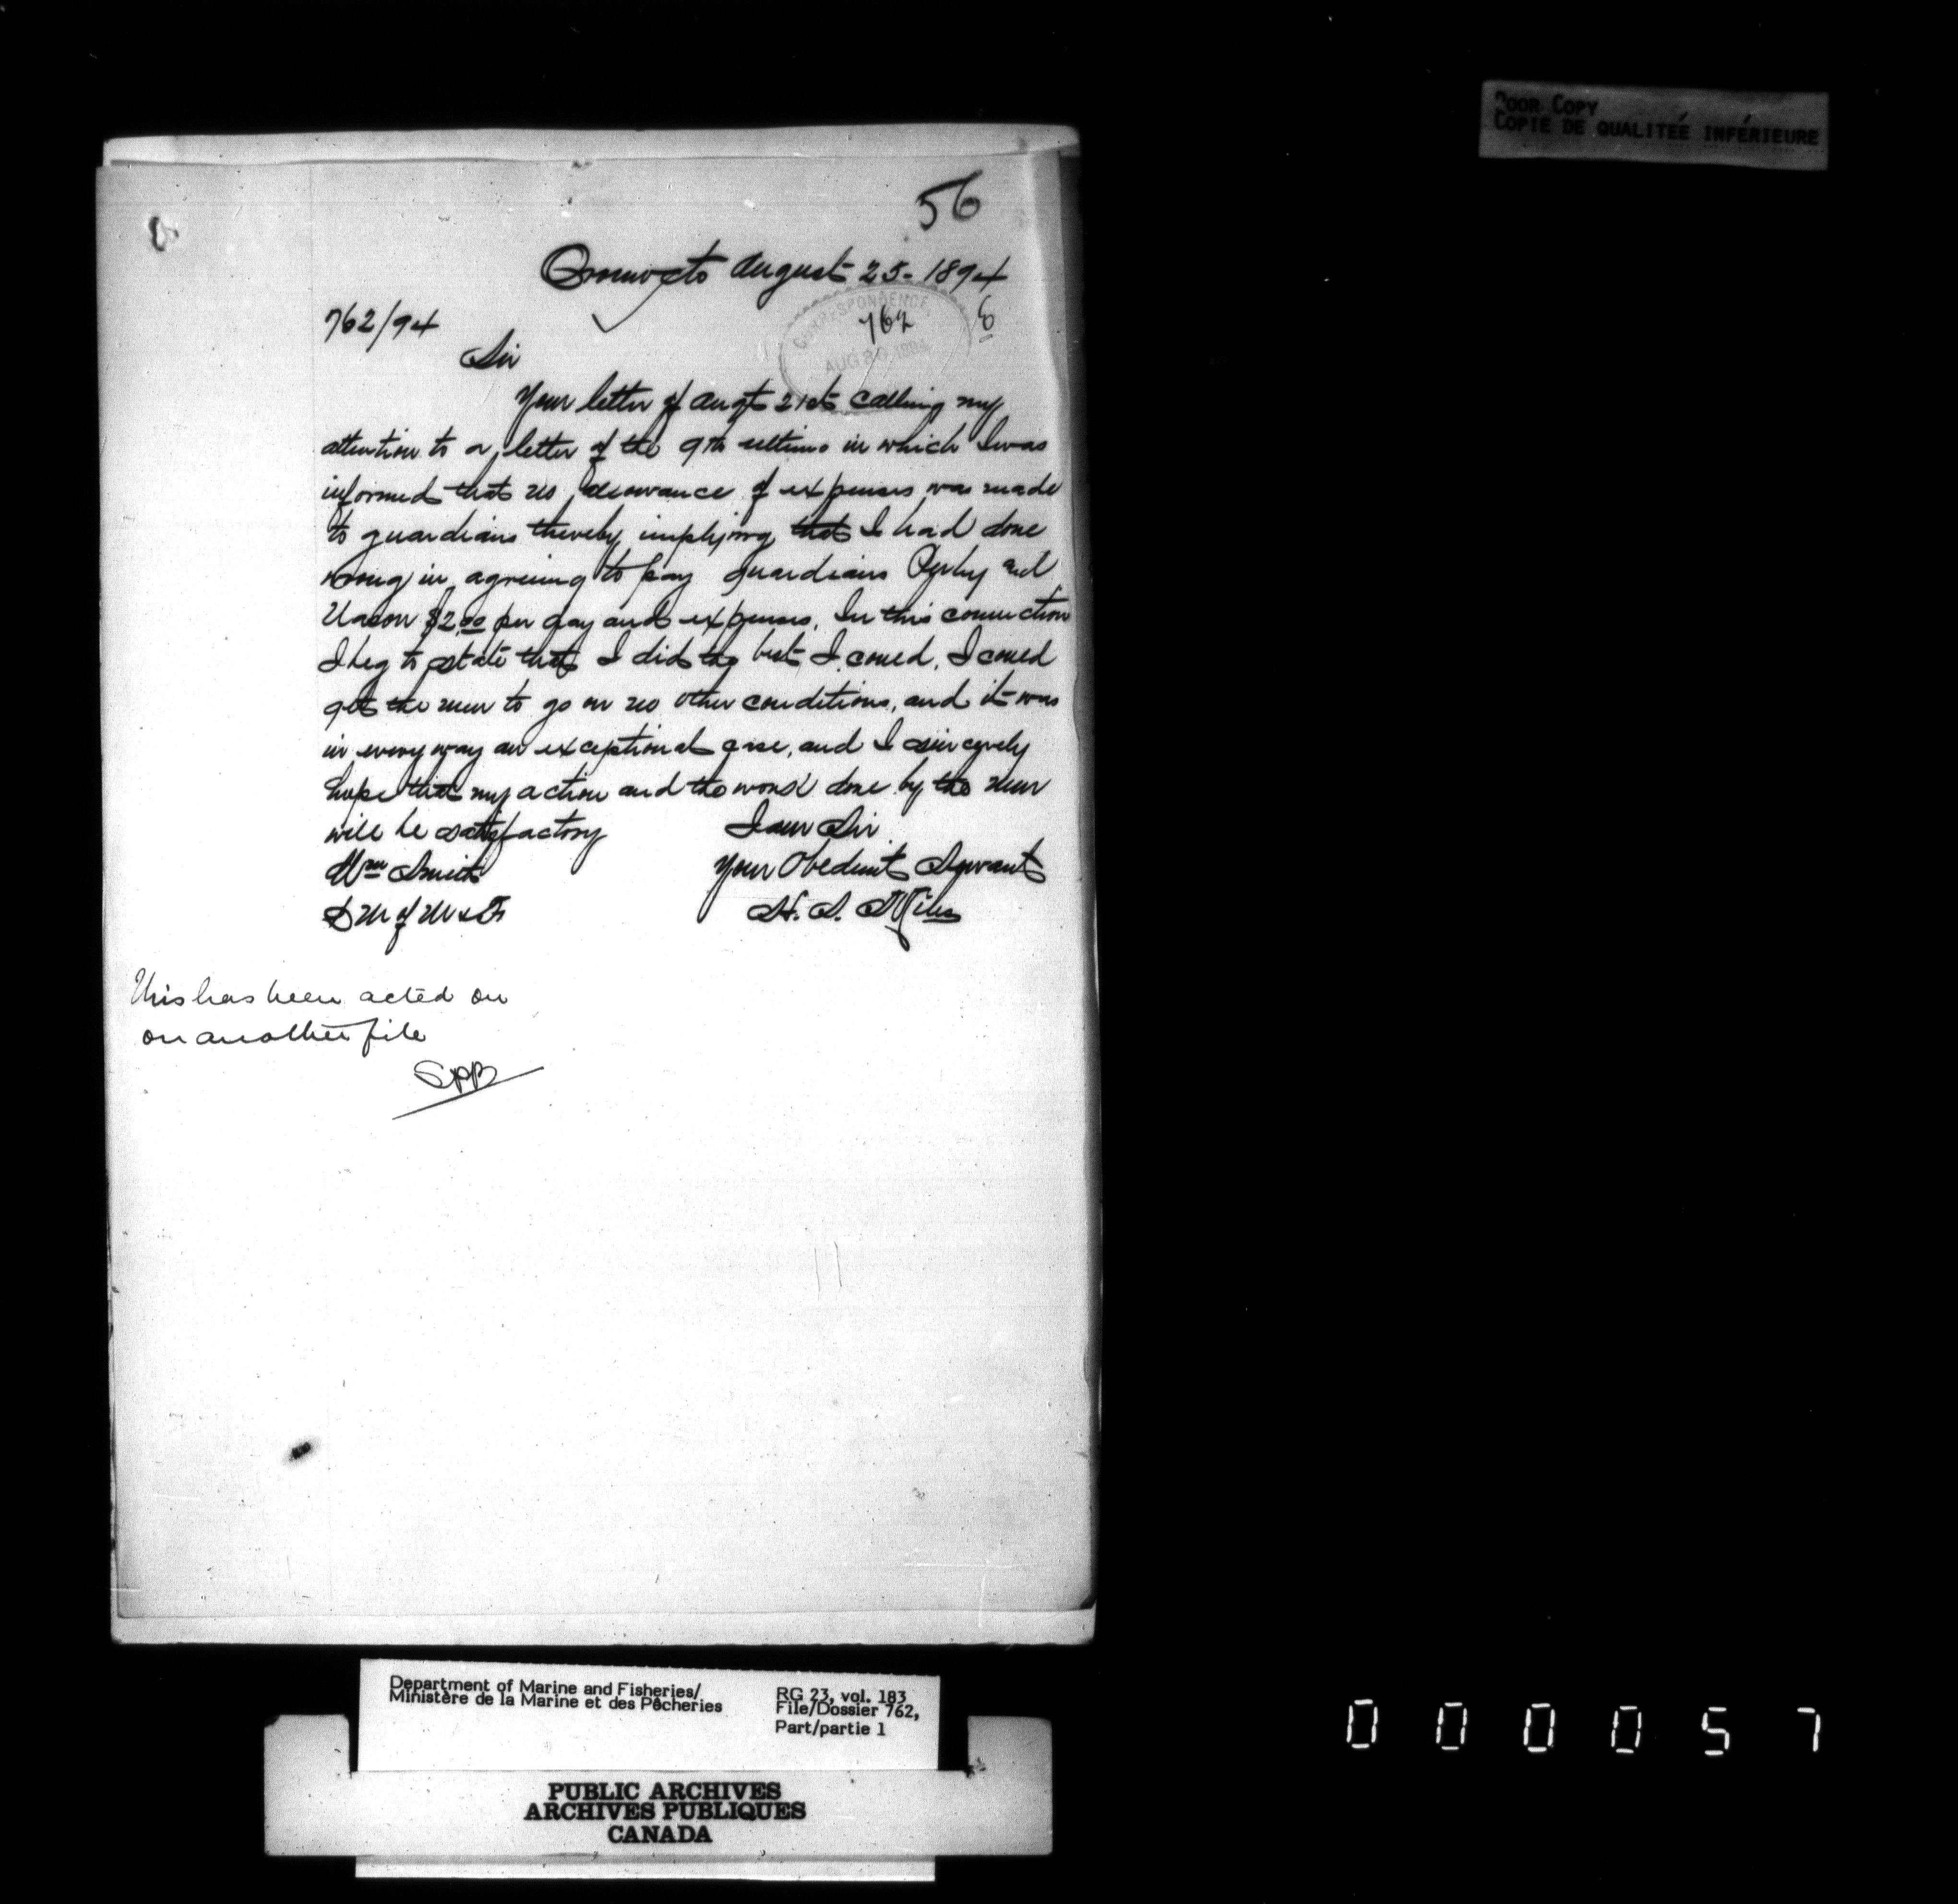 POOR COPY
COPIE DE QUALITEÉ INFÉRIEURE
56
Oromocto August 25 - 1894
762/94
CORRESPONDENCE
762
AUG 30 1894
Sir
Your letter of Augt 21st calling my
attention to a letter of the 9th ultimo in which I was
informed that no allowance of expenses was made
to guardians thereby implying that I had done
wrong in agreeing to pay guardians and
$2.00 per day and expenses. In this connection
I beg to state that I did the best I could, I could
get the men to go on no other conditions, and it was
in every way an exceptional case, and I sincerely
hope that my action and the work done by the men
will be satisfactory I am Sir
Wm Smith Your Obedient Servant
D M of M & F H. S. Miles
This has been acted on
on another file
SPB
Department of Marine and Fisheries/
Ministère de la Marine et des Pêcheries
RG 23, vol. 183
File/Dossier 762,
Part/partie 1
PUBLIC ARCHIVES
ARCHIVES PUBLIQUES
CANADA
000057